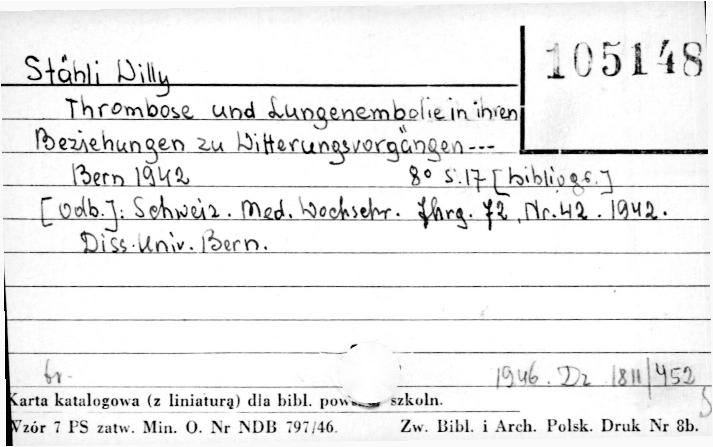 105148
Stähli Willy
Thrombose und Lungenembolie in ihren
Beziehungen zu Witterungsvorgängen---
Bern 1942 8° S.17 [bibliogr.]
[Odb.]: Schweiz. Med. Wochschr. Jhrg. 72, Nr.42. 1942.
Diss. Univ. Bern.
br. 1946. Dz 1811/452
Karta katalogowa (z liniaturą) dla bibl. szkoln.
Wzór 7 PS zatw. Min. O. Nr NDB 797/46. Zw. Bibl. i Arch. Polsk. Druk Nr 8b.